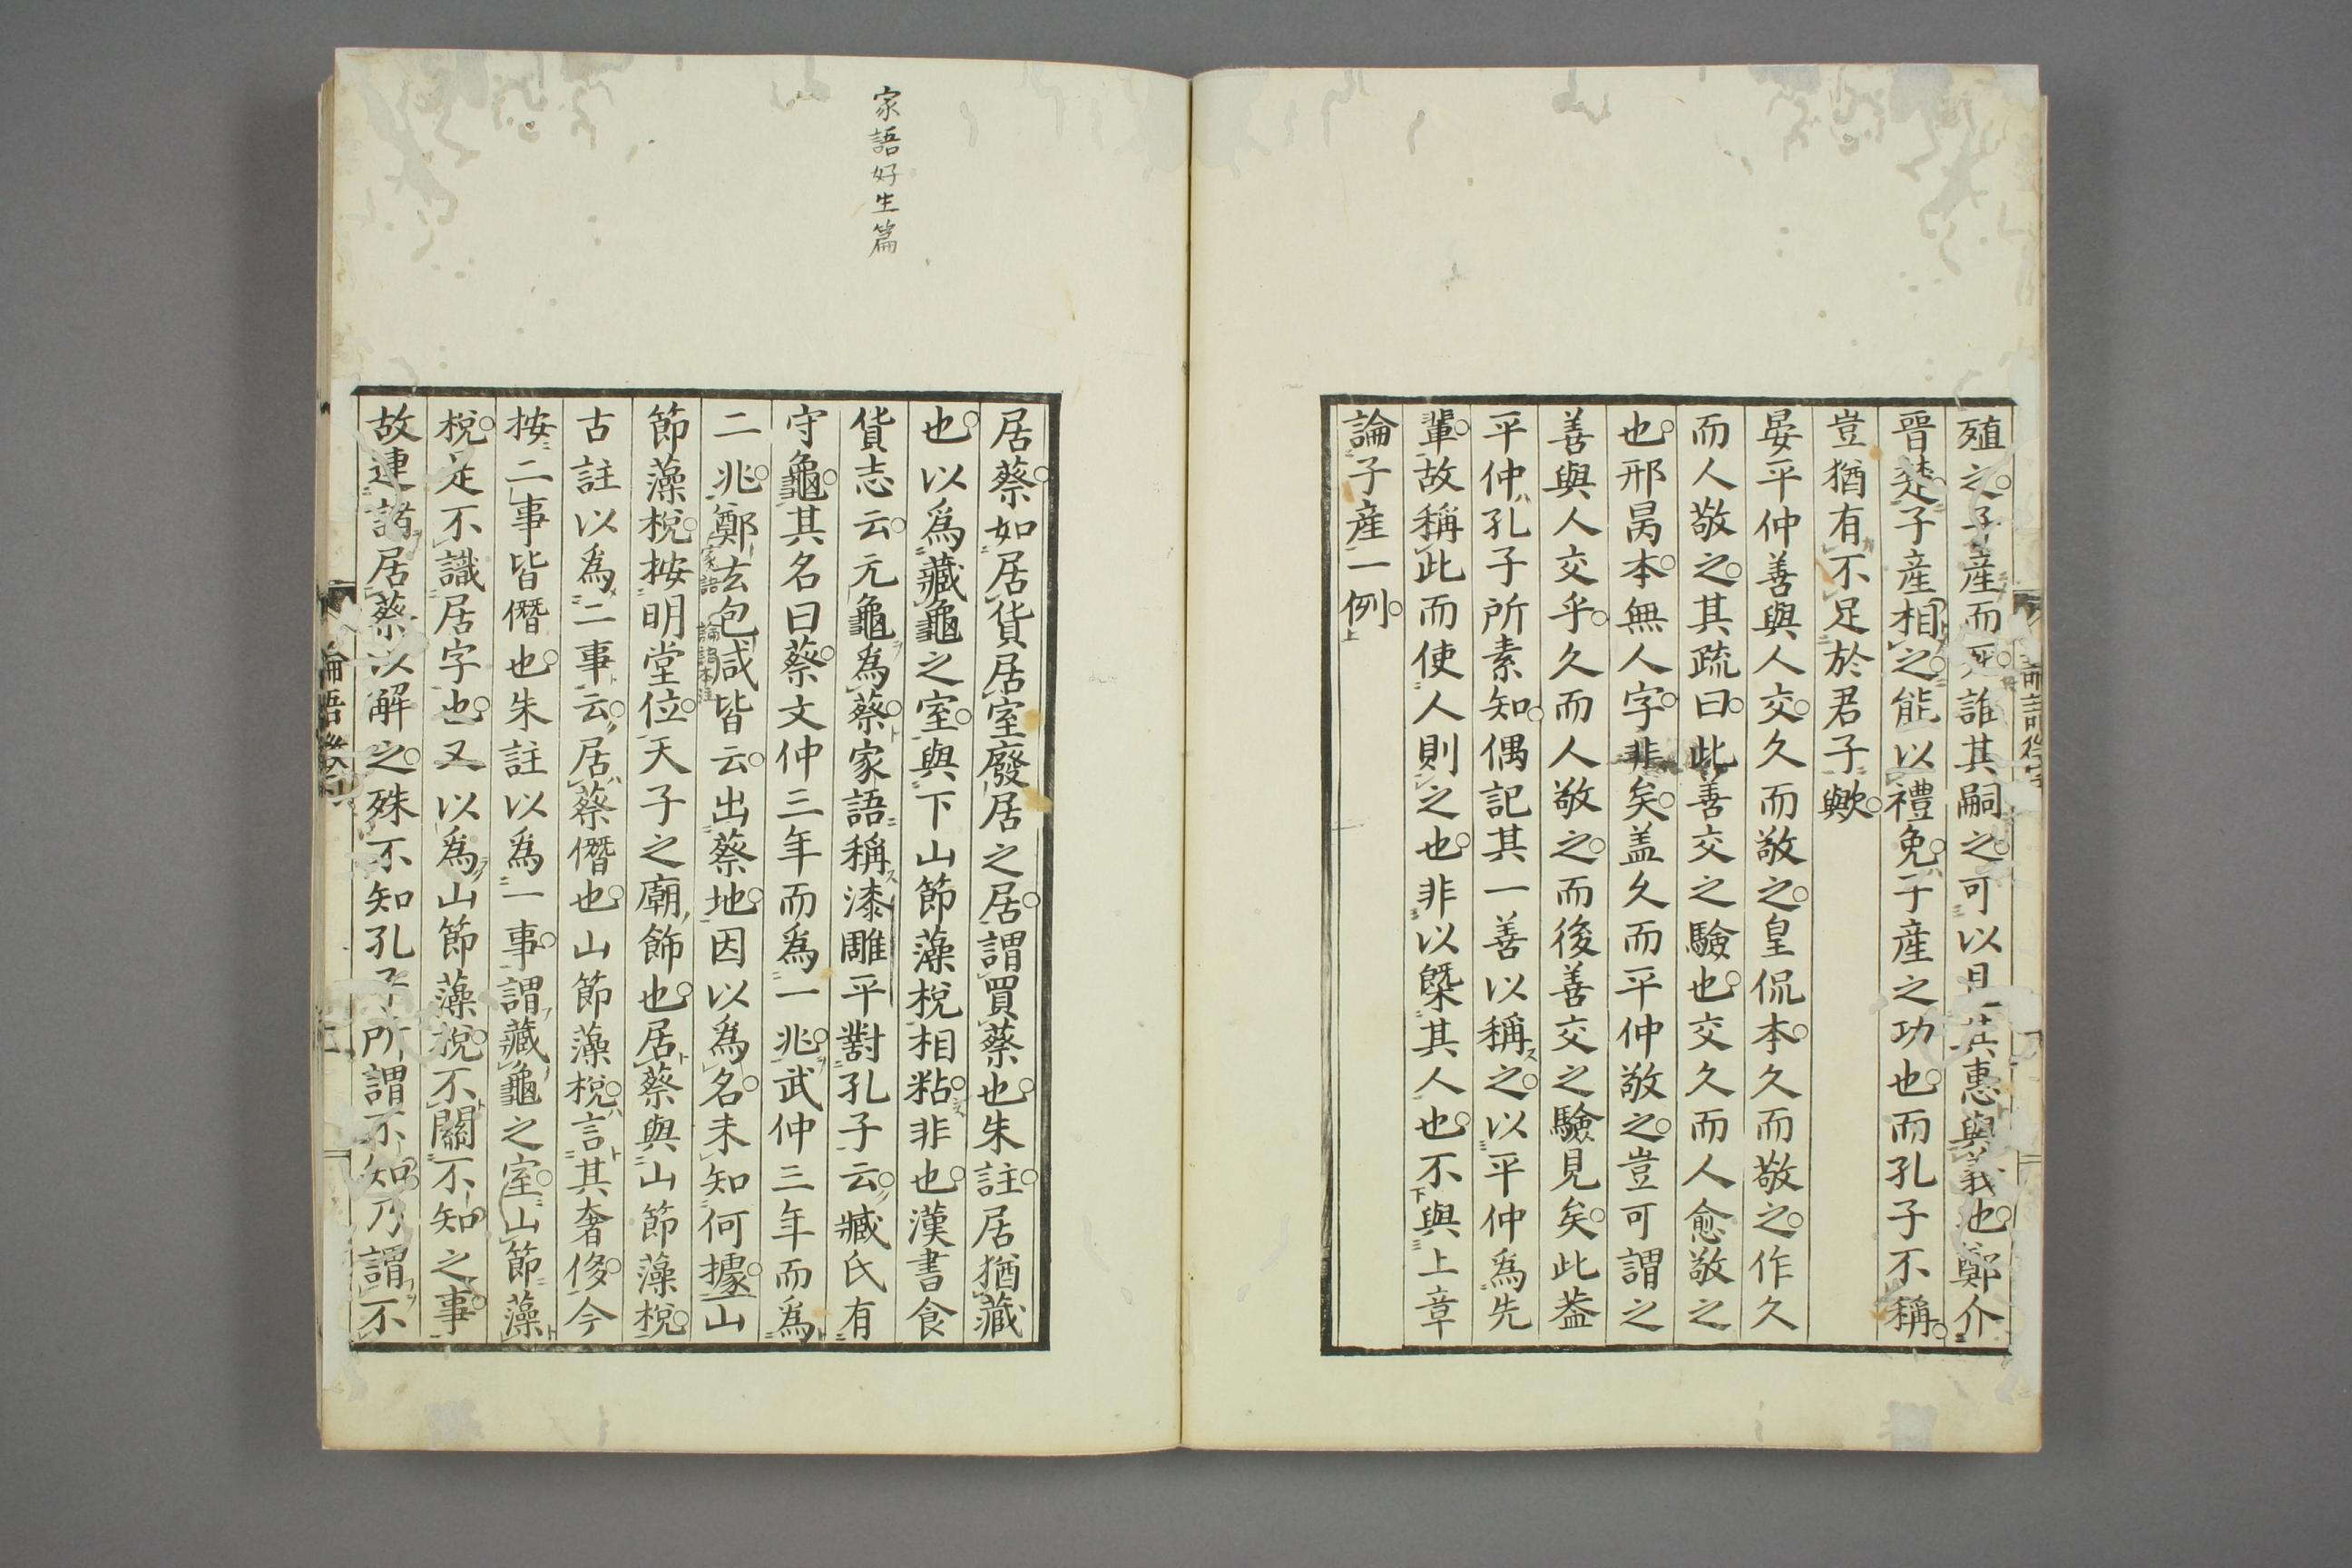 殖之子産而死誰其嗣之可以見其惠與義也鄭介
晋楚子産相之能以禮免子産之功也而孔子不稱
豈猶有不足於君子歟
晏平仲善與人交久而敬之皇侃本久而敬之作久
而人敬之其疏曰此善交之驗也交久而人愈敬之
也邢昺本無人字非矣盖久而平仲敬之豈可謂之
善與人交乎久而人敬之而後善交之驗見矣此葢
平仲孔子所素知偶記其一善以稱之以平仲爲先
輩故稱此而使人則之也非以槩其人也不與上章
論子産一例
家語好生篇
居蔡如居貨居室廢居之居謂買蔡也朱註居猶藏
也以爲藏龜之室與下山節藻梲相粘非也漢書食
貨志云元龜為蔡家語稱漆雕平對孔子云臧氏有
守龜其名曰蔡文仲三年而爲一兆武仲三年而爲
二兆鄭玄家語包咸論語本注皆云出蔡地因以爲名未知何據山
節藻梲按明堂位天子之廟飾也居蔡與山節藻梲
古註以爲二事云居蔡僭也山節藻梲言其奢侈今
按二事皆僭也朱註以爲一事謂藏龜之室山節藻
梲是不識居字也又以爲山節藻梲不關不知之事
故連謟居蔡以解之殊不知孔子所謂不知乃謂不